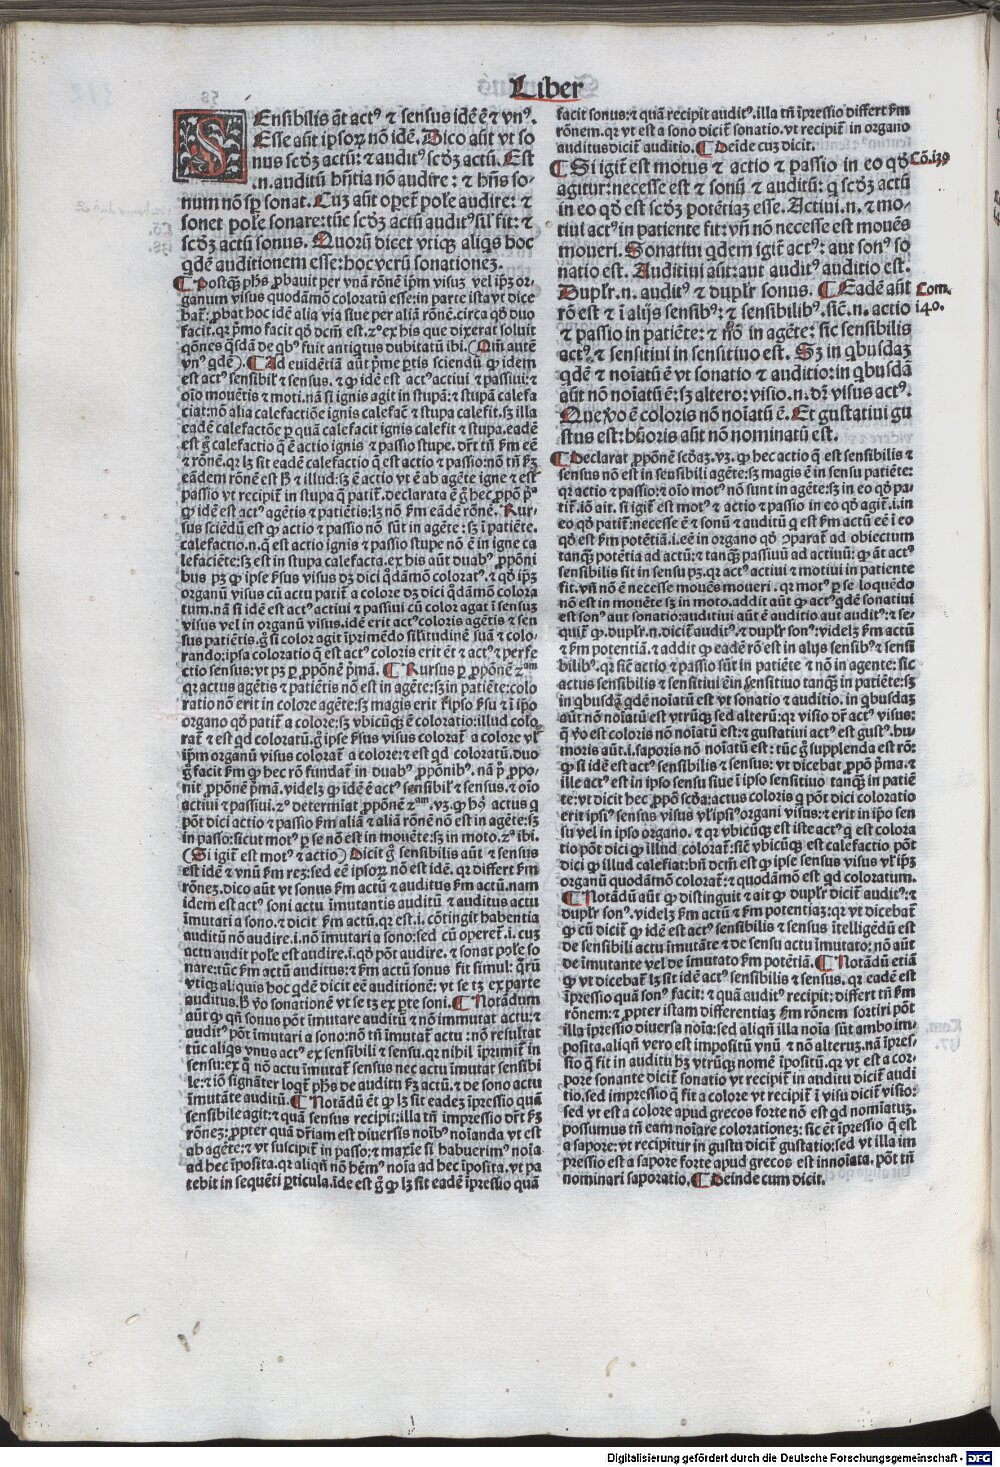 Liber
SEnsibilis āt act⁹ ⁊ sensus idē ē ⁊ vn⁹.
Esse aūt ipsoꝝ nō idē. Dico aūt vt so
nus scd̄ꝫ actū: ⁊ audit⁹ scd̄ꝫ actū. Est
.n. auditū hn̄tia nō audire: ⁊ hn̄s so-
num nō sꝑ sonat. Cuꝫ aūt oꝑet̄ pole audire: ⁊
sonet pole sonare: tūc scd̄ꝫ actū audit⁹ sil̄ fit: ⁊
scd̄ꝫ actū sonus. Quorū dicet vtiqꝫ aliqs hoc
qdē auditionem esse: hoc verū sonationeꝫ.
¶ Postqꝫ ph̄s ꝓbauit per vnā rōnē ip̄m visuꝫ vel ip̄ꝫ or
ganum visus quodāmō coloratū esse: in parte ista vt dice
bat̄: ꝓbat hoc idē alia via siue per aliā rōnē. circa qd̄ duo
facit. qꝛ pꝛmo facit qd̄ dcm̄ est. 2⁹ ex his que dixerat soluit
qōnes qsdā de qb⁹ fuit antiqtus dubitatū ibi. (Qm̄ autē
vn⁹ qdē). ¶ Ad euidētiā aūt pꝛme ꝑtis sciendū ꝙ idem
est act⁹ sensibil̄ ⁊ sensus. ⁊ ꝙ idē est act⁹ actiui ⁊ passiui: ⁊
oīo mouētis ⁊ moti. nā si ignis agit in stupā: ⁊ stupā calefa
ciat: nō alia calefactiōe ignis calefac̄ ⁊ stupa calefit. sꝫ illa
eadē calefactōe ꝑ quā calefacit ignis calefit ⁊ stupa. eadē
est ḡ calefactio q̄ ē actio ignis ⁊ passio stupe. dr̄t tn̄ ẜm eē
⁊ rōnē. qꝛ lꝫ sit eadē calefactio q̄ est actio ⁊ passio: nō tn̄ ẜꝫ
eādem rōnē est ꝧ ⁊ illud: sꝫ ē actio vt ē ab agēte igne ⁊ est
passio vt recipit̄ in stupa q̄ patit̄. declarata ē ḡ hec ꝓpō pꝛ⁹
ꝙ idē est act⁹ agētis ⁊ patiētis: lꝫ nō ẜm eadē rōnē. Rur-
sus sciēdū est ꝙ actio ⁊ passio nō sūt in agēte: sꝫ ī patiēte.
calefactio. n. q̄ est actio ignis ⁊ passio stupe nō ē in igne ca
lefaciēte: sꝫ est in stupa calefacta. ex his aūt duab⁹ ꝓpōni
bus pꝫ ꝙ ipse ẜsus visus dꝫ dici qdāmō colorat⁹. ⁊ qd̄ ip̄ꝫ
organū visus cū actu patit̄ a colore dꝫ dici qdāmō colora
tum. nā si idē est act⁹ actiui ⁊ passiui cū color agat ī sensuꝫ
visus vel in organū visus. idē erit act⁹ coloris agētis ⁊ sen
sus patiētis. ḡ si color agit īprimēdo silitudinē suā ⁊ colo-
rando: ipsa coloratio q̄ est act⁹ coloris erit ēt ⁊ act⁹ ⁊ perfe
ctio sensus: vt pꝫ ꝑ ꝓpōnē pꝛmā. ¶ Rursus ꝑ ꝓpōnē 2ᵃᵐ
qꝛ actus agētis ⁊ patiētis nō est in agēte: sꝫ in patiēte: colo
ratio nō erit in colore agēte: sꝫ magis erit ī ipso ẜsu ⁊ ī ip̄o
organo qd̄ patit̄ a colore: sꝫ vbicūqꝫ ē coloratio: illud colo
rat̄ ⁊ est qd coloratū. ḡ ipse ẜsus visus colorat̄ a colore vl̄
ip̄m organū visus colorat̄ a colore: ⁊ est qd coloratū. duo
ḡ facit ẜm ꝙ hec rō fundat̄ in duab⁹ ꝓpōnib⁹. nā pꝛ ꝓpo-
nit ꝓpōnē pꝛmā. videlꝫ ꝙ idē ē act⁹ sensibil̄ ⁊ sensus. ⁊ oīo
actiui ⁊ passiui. 2⁹ determīat ꝓpōnē 2ᵃᵐ. vꝫ. ꝙ hꝰ actus q
pōt dici actio ⁊ passio ẜm aliā ⁊ aliā rōnē nō est in agēte: sꝫ
in passo: sicut mot⁹ ꝑ se nō est in mouēte: sꝫ in moto. 2⁹ ibi.
(Si igit̄ est mot⁹ ⁊ actio) Dicit ḡ sensibilis aūt ⁊ sensus
est idē ⁊ vnū ẜm reꝫ: sed eē ipsoꝝ nō est idē. qꝛ differt ẜm
rōneꝫ. dico aūt vt sonus ẜm actū ⁊ auditus ẜm actū. nam
idem est act⁹ soni actu īmutantis auditū ⁊ auditus actu
īmutati a sono. ⁊ dicit ẜm actū. qꝛ est. i. cōtingit habentia
auditū nō audire. i. nō īmutari a sono: sed cū operet̄. i. cuꝫ
actu audit pole est audire. i. qd̄ pōt audire. ⁊ sonat pole so
nare: tūc ẜm actū auditus: ⁊ ẜm actū sonus fit simul: qꝛū
vtiqꝫ aliquis hoc qdē dicit eē auditionē: vt se tꝫ ex parte
auditus. ꝧ v̄o sonationē vt se tꝫ ex ꝑte soni. ¶ Notādum
aūt ꝙ qn̄ sonus pōt īmutare auditū ⁊ nō immutat actu: ⁊
audit⁹ pōt īmutari a sono: nō tn̄ īmutat̄ actu: nō resultat
tūc aliqs vnus act⁹ ex sensibili ⁊ sensu. qꝛ nihil īprimit̄ in
sensu: ex q̄ nō actu īmutat̄ sensus nec actu īmutat sensibi
le: ⁊ iō signāter loqt̄ ph̄s de auditu ẜꝫ actū. ⁊ de sono actu
īmutāte auditū. ¶ Notādū ēt ꝙ lꝫ sit eadeꝫ īpressio quā
sensibile agit: ⁊ quā sensus recipit: illa tn̄ impressio dr̄t ẜꝫ
rōneꝫ: ꝓpter quā dr̄iam est diuersis noīb⁹ noīanda vt est
ab agēte: ⁊ vt suscipit̄ in passo: ⁊ maxīe si habuerim⁹ noīa
ad hec īposita. qꝛ aliqn̄ nō hēm⁹ noīa ad hec īposita. vt pa
tebit in sequēti ꝑticula. īde est ḡ ꝙ lꝫ sit eadē īpressio quā
facit sonus: ⁊ quā recipit audit⁹. illa tn̄ īpressio differt ẜm
rōnem. qꝛ vt est a sono dicit̄ sonatio. vt recipit̄ in organo
auditus dicit̄ auditio. ¶ Deīde cuꝫ dicit.
¶ Si igit̄ est motus ⁊ actio ⁊ passio in eo qd̄
Cō. 139
agitur: necesse est ⁊ sonū ⁊ auditū: q scd̄ꝫ actū
in eo qd̄ est scd̄ꝫ potētiaꝫ esse. Actiui. n. ⁊ mo-
tiui act⁹ in patiente fit: vn̄ nō necesse est mouēs
moueri. Sonatiui qdem igit̄ act⁹: aut son⁹ so
natio est. Auditiui aūt: aut audit⁹ auditio est.
Duplr̄. n. audit⁹ ⁊ duplr̄ sonus. ¶ Eadē aūt
Com.
140.
rō est ⁊ ī alijs sensib⁹: ⁊ sensibilib⁹. sic̄. n. actio
⁊ passio in patiēte: ⁊ nō in agēte: sic sensibilis
act⁹ ⁊ sensitiui in sensitiuo est. Sꝫ in qbusdaꝫ
qdē ⁊ noīatū ē vt sonatio ⁊ auditio: in qbusdā
aūt nō noīatū ē: sꝫ altero: visio. n. dr̄ visus act⁹.
Que v̄o ē coloris nō noīatū ē. Et gustatiui gu
stus est: hūoris aūt nō nominatū est.
¶ Declarat ꝓpōnē scd̄aꝫ. vꝫ. ꝙ hec actio q̄ est sensibilis ⁊
sensus nō est in sensibili agēte: sꝫ magis ē in sensu patiēte:
qꝛ actio ⁊ passio: ⁊ oīo mot⁹ nō sunt in agēte: sꝫ in eo qd̄ pa-
tit̄. iō ait. si igit̄ est mot⁹ ⁊ actio ⁊ passio in eo qd̄ agit̄. i. in
eo qd̄ patit̄: necesse ē ⁊ sonū ⁊ auditū q est ẜm actū eē ī eo
qd̄ est ẜm potētiā. i. eē in organo qd̄ ꝯparat̄ ad obiectum
tanqꝫ potētia ad actū: ⁊ tanqꝫ passiuū ad actiuū: ꝙ āt act⁹
sensibilis sit in sensu pꝫ. qꝛ act⁹ actiui ⁊ motiui in patiente
fit. vn̄ nō ē necesse mouēs moueri. qꝛ mot⁹ ꝑ se loquēdo
nō est in mouēte sꝫ in moto. addit aūt ꝙ act⁹ qdē sonatiui
est son⁹ aut sonatio: auditiui aūt ē auditio aut audit⁹: ⁊ se-
quit̄ ꝙ. duplr̄. n. dicit̄ audit⁹. ⁊ duplr̄ son⁹: videlꝫ ẜm actū
⁊ ẜm potentiā. ⁊ addit ꝙ eadē rō est in alijs sensib⁹ ⁊ sensi
bilib⁹. qꝛ sic̄ actio ⁊ passio sūt in patiēte ⁊ nō in agente: sic
actus sensibilis ⁊ sensitiui ē in sensitiuo tanqꝫ in patiēte: sꝫ
in qbusdā qdē noīatū est vt sonatio ⁊ auditio. in qbusdaꝫ
aūt nō noīatū est vtrūqꝫ sed alterū: qꝛ visio dr̄ act⁹ visus:
q̄ v̄o est coloris nō noīatū est: ⁊ gustatiui act⁹ est gust⁹. hu-
moris aūt. i. saporis nō noīatū est: tūc ḡ supplenda est rō:
ꝙ si idē est act⁹ sensibilis ⁊ sensus: vt dicebat ꝓpō pꝛma. ⁊
ille act⁹ est in ipso sensu siue ī ipso sensitiuo tanqꝫ in patiē
te: vt dicit hec ꝓpō scd̄a: actus coloris q pōt dici coloratio
erit ipsi⁹ sensus visus vl̄ ipsi⁹ organi visus: ⁊ erit in ip̄o sen
su vel in ipso organo. ⁊ qꝛ vbicūqꝫ est iste act⁹ q est colora
tio pōt dici ꝙ illud colorat̄: sic̄ vbicūqꝫ est calefactio pōt
dici ꝙ illud calefiat: bn̄ dcm̄ est ꝙ ipse sensus visus vl̄ ip̄ꝫ
organū quodāmō colorat̄: ⁊ quodāmō est qd coloratum.
¶ Notādū aūt ꝙ distinguit ⁊ ait ꝙ duplr̄ dicit̄ audit⁹: ⁊
duplr̄ son⁹. videlꝫ ẜm actū ⁊ ẜm potentiaꝫ: qꝛ vt dicebat̄
ꝙ cū dicit̄ ꝙ idē est act⁹ sensibilis ⁊ sensus ītelligēdū est
de sensibili actu īmutāte ⁊ de sensu actu īmutato: nō aūt
de īmutante vel de īmutato ẜm potētiā. ¶ Notādū etiā
ꝙ vt dicebat̄ lꝫ sit idē act⁹ sensibilis ⁊ sensus. qꝛ eadē est
īpressio quā son⁹ facit: ⁊ quā audit⁹ recipit: differt tn̄ ẜm
rōnem: ⁊ ꝓpter istam differentiaꝫ ẜm rōnem sortiri pōt
illa īpressio diuersa noīa: sed aliqn̄ illa noīa sūt ambo im-
posita. aliqn̄ vero est impositū vnū ⁊ nō alteruꝫ. nā īpres-
sio q̄ fit in auditu hꝫ vtrūqꝫ nomē īpositū. qꝛ vt est a cor-
pore sonante dicit̄ sonatio vt recipit̄ in auditu dicit̄ audi
tio. sed impressio q̄ fit a colore vt recipit̄ ī visu dicit̄ visio:
sed vt est a colore apud grecos forte nō est qd nomīatuꝫ.
possumus tn̄ eam noīare colorationeꝫ: sic ēt īpressio q̄ est
a sapore: vt recipitur in gustu dicit̄ gustatio: sed vt illa im
pressio est a sapore forte apud grecos est innoīata. pōt tn̄
nominari saporatio. ¶ Deinde cum dicit.
Digitalisierung gefördert durch die Deutsche Forschungsgemeinschaft - DFG